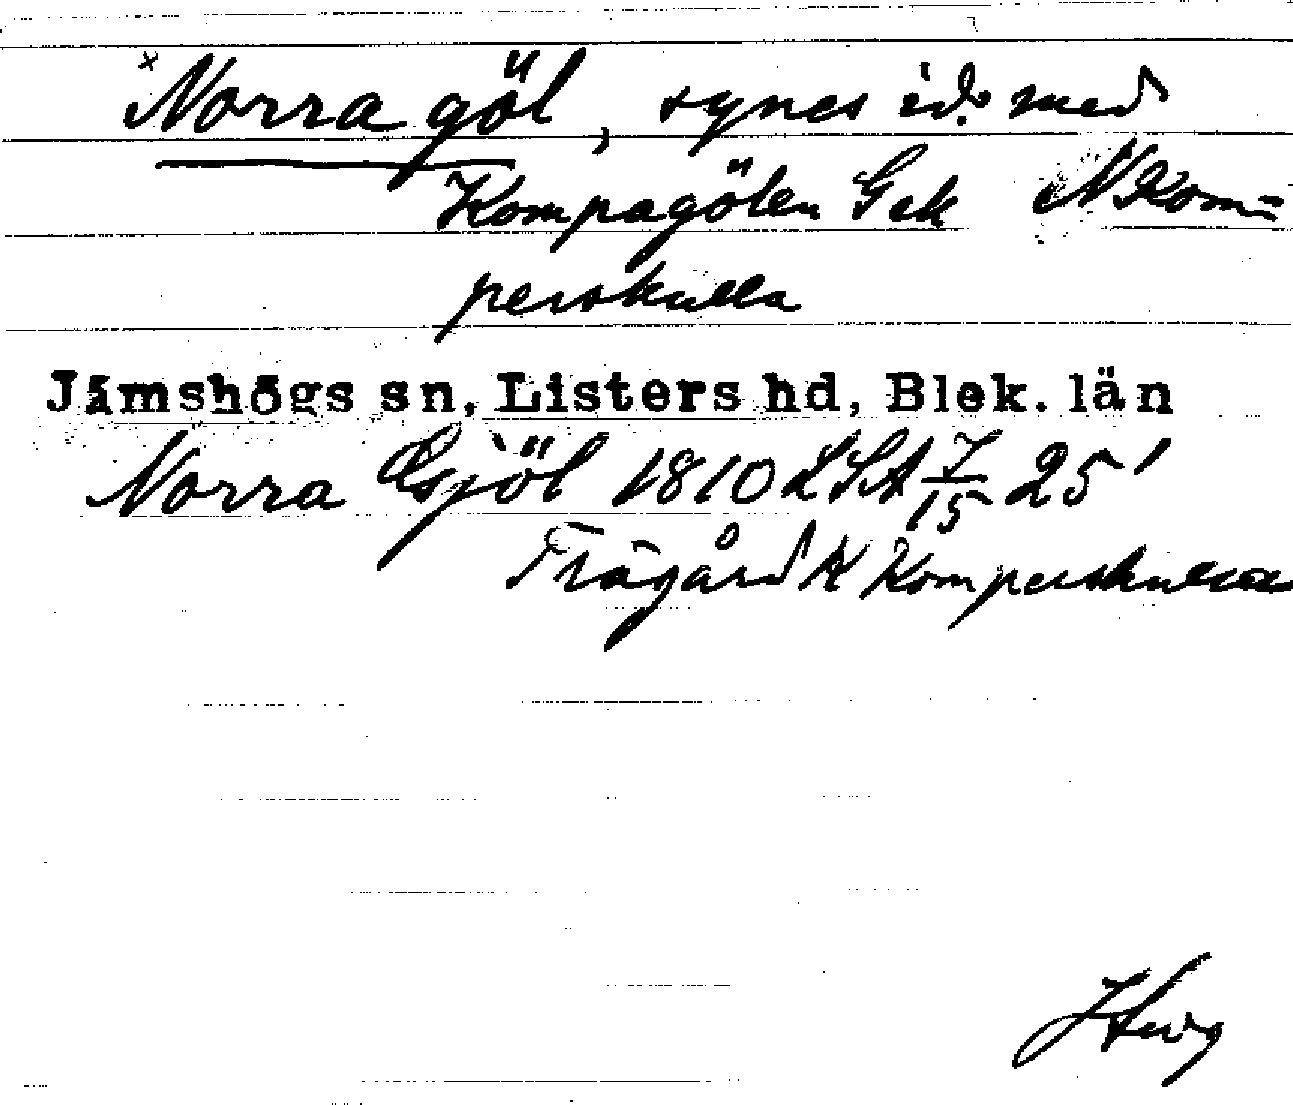 × Norra göl, synes id. med
Kompagölen Gek N Kom=
perskulla
Jämshögs sn, Listers hd, Blek. län
Norra Gsjöl 1810 LSA 7/15 25'
Trägård K Komperskulla